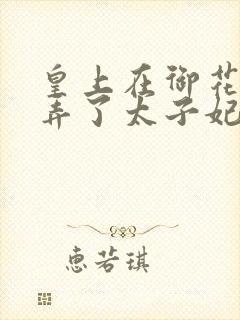 皇上在御花
弄了太子妃
惠若琪